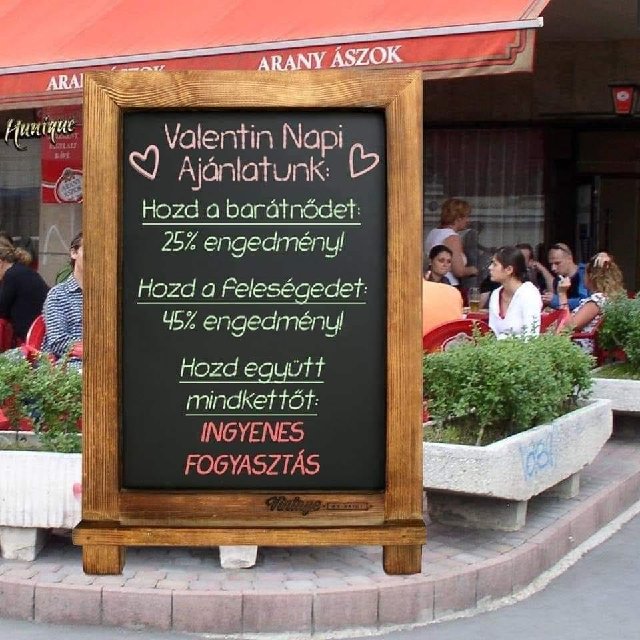 ARANY ÁSZOK
ARANY ÁSZOK
Hunique
Valentin Napi
Ajánlatunk:
Hozd a barátnődet:
25% engedmény!
Hozd a feleségedet:
45% engedmény!
Hozd együtt
mindkettőt:
INGYENES
FOGYASZTÁS